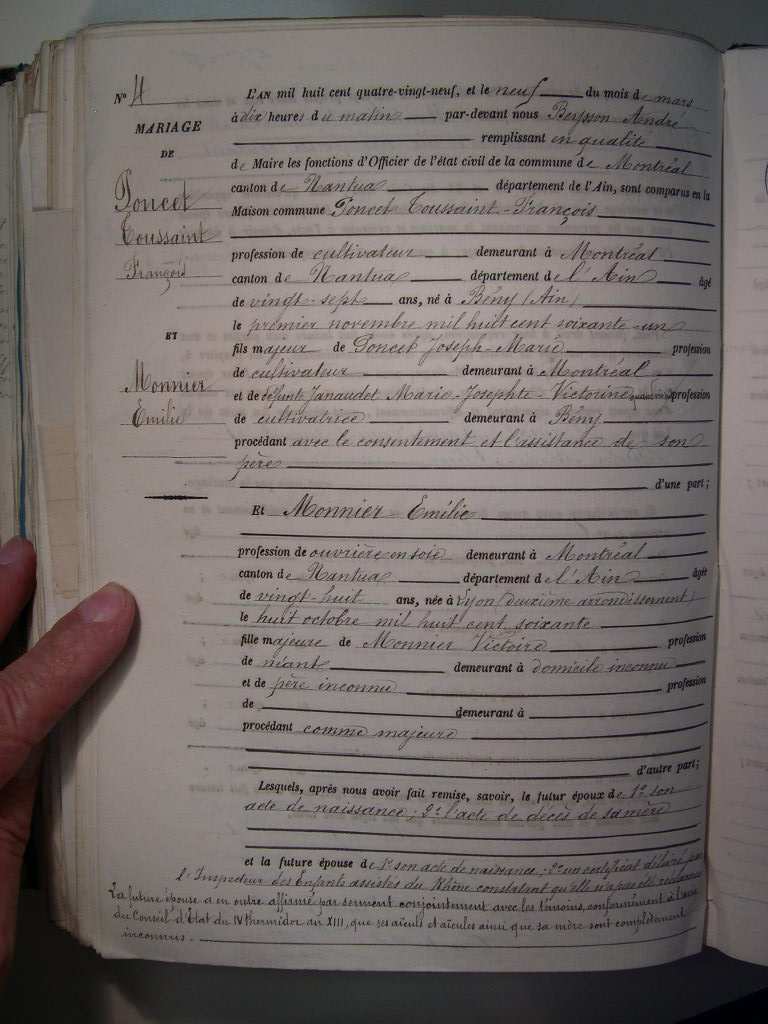 N° 4
MARIAGE
DE
Poncet
Toussaint
François
ET
Monnier
Emilie
L'AN mil huit cent quatre-vingt-neuf, et le neuf du mois de mars
à dix heures du matin par-devant nous André
remplissant en qualité
de Maire les fonctions d'Officier de l'état civil de la commune de Montréal
canton de Nantua département de l'Ain, sont comparus en la
Maison commune Poncet Toussaint-François
profession de cultivateur demeurant à Montréal
canton de Nantua département de l'Ain âgé
de vingt-sept ans, né à Bény (Ain)
le premier novembre mil huit cent soixante-un
fils majeur de Poncet Joseph-Marie profession
de cultivateur demeurant à Montréal
et de défunte Janaudet Marie-Josephte-Victorine quand vivait profession
de cultivatrice demeurant à Bény
procédant avec le consentement et l'assistance de son
père
d'une part;
Et Monnier Emélie
profession de ouvrière en soie demeurant à Montréal
canton de Nantua département de l'Ain âgée
de vingt-huit ans, née à Lyon (deuxième arrondissement)
le huit octobre mil huit cent soixante
fille majeure de Monnier Victoire profession
de niant demeurant à domicile inconnu
et de père inconnu profession
de demeurant à
procédant comme majeure
d'autre part;
Lesquels, après nous avoir fait remise, savoir, le futur époux de 1° son
acte de naissance; 2° l'acte de décès de sa mère
et la future épouse de 1° son acte de naissance; 2° un certificat délivré par
l'Inspecteur des Enfants assistés du Rhône constatant qu'elle n'a pas été réclamée
La future épouse a en outre affirmé par serment conjointement avec les témoins, conformément à l'avis
du Conseil d'Etat du IV thermidor an XIII, que ses aïeuls et aïeules ainsi que sa mère sont complètement
inconnus.